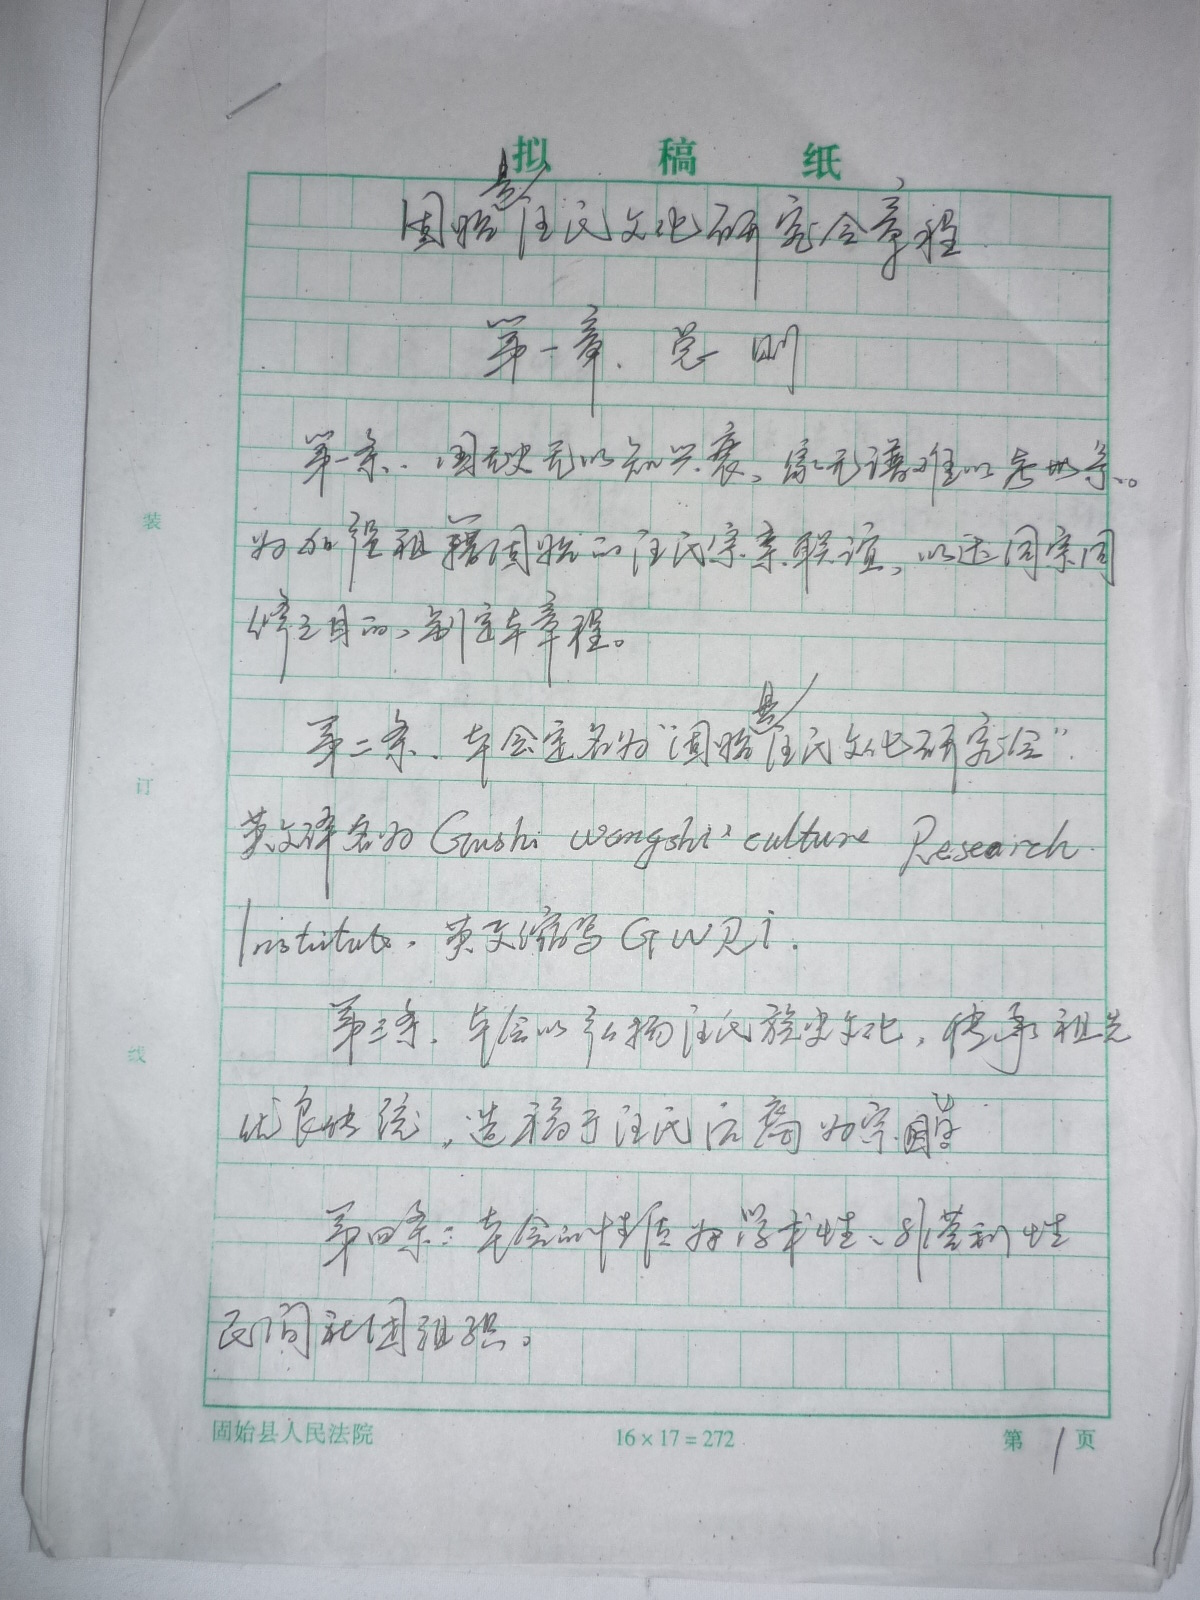 拟稿纸
固始县汪氏文化研究会章程
第一章、总则
第一条、国无史无以知兴衰,家无谱难以考世系。
为加强祖籍固始的汪氏宗亲联谊,以达同宗同
修之目的,制定本章程。
第二条、本会定名为“固始县汪氏文化研究会”
英文译名为 Gushi Wangshi' culture Research
Institute,英文缩写 GWRi.
第三条、本会以弘扬汪氏族史文化,传承祖先
优良传统,造福于汪氏后裔为宗旨
第四条:本会的性质为学术性、非营利性
民间社团组织。
装
订
线
固始县人民法院 16×17=272 第1页